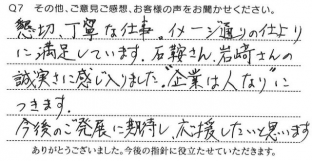 Q7 その他、ご意見ご感想、お客様の声をお聞かせください。
懇切、丁寧な仕事。イメージ通りの仕上り
に満足しています。石鞍さん、岩崎さんの
誠実さに感じ入りました。"企業は人なり"に
つきます。
今後のご発展に期待し、応援したいと思います
ありがとうございました。今後の指針に役立たせていただきます。